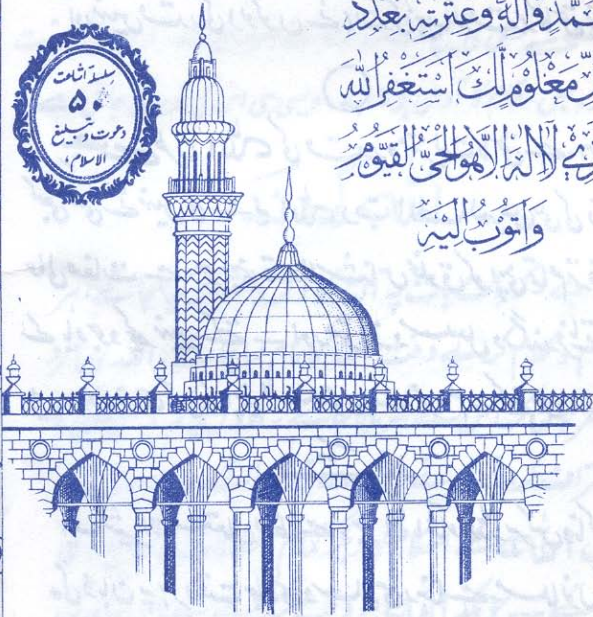 سلسلۂ اشاعت
۵۰
دعوت و تبلیغ
الاسلام،
وَآلِهٖ وَعِتْرَتِهٖ بِعَدَدِ
مَعْلُوْمٍ لَّكَ اَسْتَغْفِرُ اللهَ
لَآ اِلٰهَ اِلَّا هُوَ الْحَيُّ الْقَيُّوْمُ
وَاَتُوْبُ اِلَيْهِ